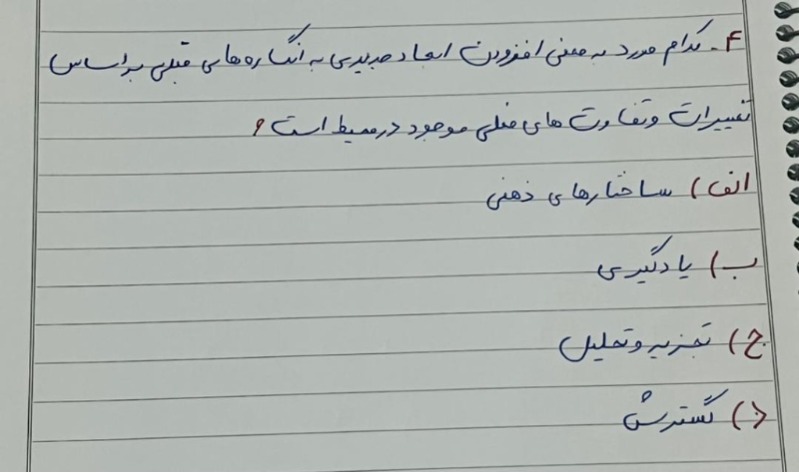 ۴- کدام مورد به معنی افزودن ابعاد جدیدی به انگاره‌های قبلی بر اساس
تغییرات و تفاوت های فعلی موجود در محیط است؟
الف) ساختارهای ذهنی
ب) یادگیری
ج) تجزیه و تحلیل
د) گسترش